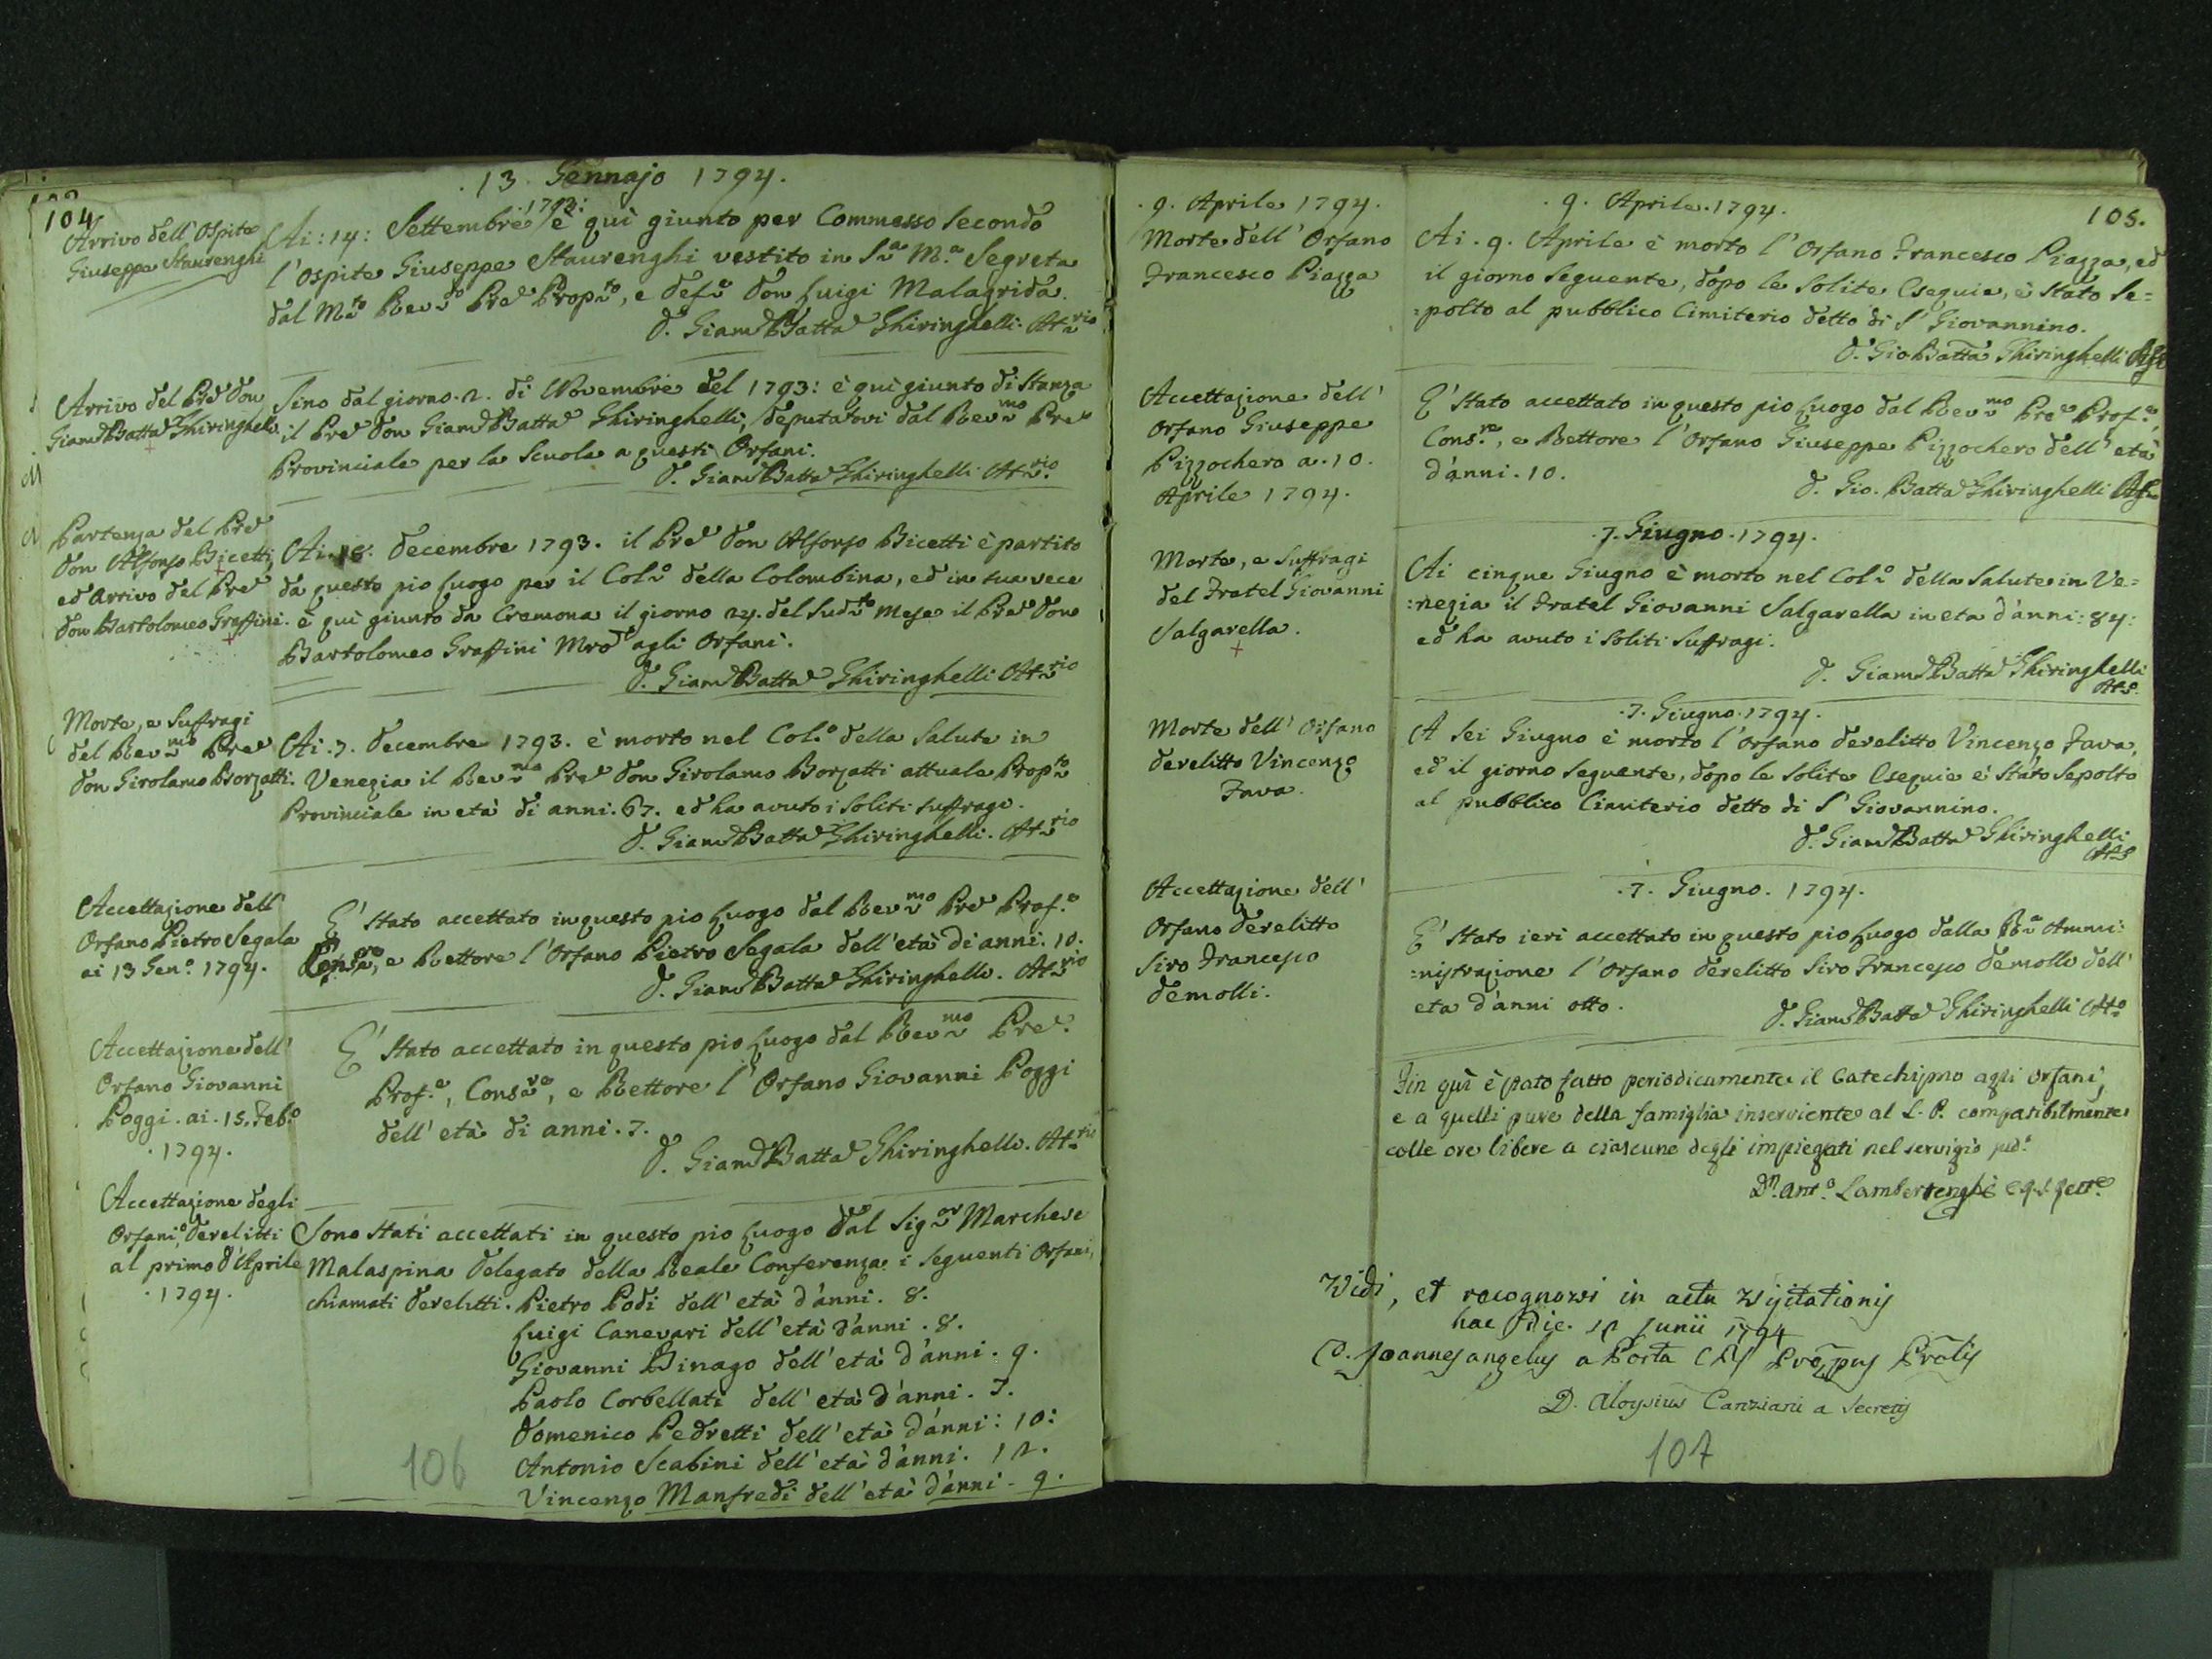 104
. 13 Gennajo 1794.
Arrivo dell'Ospite
Giuseppe Staurenghi
Ai : 14 : Settembre 1793: è quì giunto per Commesso secondo
l'Ospite Giuseppe Staurenghi vestito in S.a M.a Segreta
dal M.to Rev.do Pre Prop.to, e Def.e Don Luigi Malagrida.
D. Giam Batta Ghiringhelli Att.rio
Arrivo del Pre Don
Giam Batta Ghiringhelli
Sino dal giorno . 2 . di Novembre del 1793 : è quì giunto di Stanza
il Pre Don Giam Batta Ghiringhelli, deputatovi dal Rev.mo Pre
Provinciale per la Scuola a questi Orfani.
D. Giam Batta Ghiringhelli Att.rio
Partenza del Pre
Don Alfonso Bicetti,
ed arrivo del Pre
Don Bartolomeo Graffini.
Decembre 1793. il Pre Don Alfonso Bicetti è partito
da questo pio Luogo per il Col.o della Colombina, ed in sua vece
è quì giunto da Cremona il giorno 24. del sud.to Mese il Pre Don
Bartolomeo Graffini Mro agli Orfani.
D. Giam Batta Ghiringhelli Att.rio
Morte, e Suffragi
del Rev.mo Pre
Don Girolamo Borzatti.
Ai . 7 . Decembre 1793. è morto nel Col.o della Salute in
Venezia il Rev.mo Pre Don Girolamo Borzatti attuale Prop.to
Provinciale in età di anni. 67. ed ha avuto i soliti suffragi.
D. Giam Batta Ghiringhelli. Att.rio
Accettazione dell'
Orfano Pietro Segala
ai 13 Gen.o 1794.
E' stato accettato in questo pio Luogo dal Rev.mo Pre Prof.o
Cons.re, e Rettore l'Orfano Pietro Segala dell'età di anni. 10.
D. Giam Batta Ghiringhelli. Att.rio
Accettazione dell'
Orfano Giovanni
Poggi . ai . 15. Feb.o
. 1794.
E' stato accettato in questo pio Luogo dal Rev.mo Pre
Prof.o, Cons.re, e Rettore l'Orfano Giovanni Poggi
dell'età di anni . 7.
D. Giam Batta Ghiringhelli. Att.rio
Accettazione degli
Orfani, Derelitti
al primo d'Aprile
. 1794.
Sono stati accettati in questo pio Luogo dal Sig.or Marchese
Malaspina Delegato della Reale Conferenza i seguenti Orfani,
chiamati Derelitti. Pietro Podi dell'età d'anni. 8.
Luigi Canevari dell'età d'anni . 8.
Giovanni Binago dell'età d'anni . 9.
Paolo Corbellati dell'età d'anni . 7.
Domenico Pedretti dell'età d'anni : 10:
Antonio Scabini dell'età d'anni. 12.
Vincenzo Manfredi dell'età d'anni . 9.
106
105.
. 9. Aprile 1794.
Morte dell'Orfano
Francesco Piazza
. 9. Aprile. 1794.
Ai . 9. Aprile è morto l'Orfano Francesco Piazza, ed
il giorno seguente, dopo le solite Esequie, è stato se=
=polto al pubblico Cimiterio detto di S. Giovannino.
D. Gio Batta Ghiringhelli
Accettazione dell'
Orfano Giuseppe
Pizzochero a . 10.
Aprile 1794.
E' stato accettato in questo pio Luogo dal Rev.mo Pre Prof.o,
Cons.re, e Rettore l'Orfano Giuseppe Pizzochero dell'età
d'anni . 10.
D. Gio. Batta Ghiringhelli
. 7. Giugno . 1794.
Morte, e Suffragi
del Fratel Giovanni
Salgarella.
Ai cinque Giugno è morto nel Col.o della Salute in Ve=
:nezia il Fratel Giovanni Salgarella in eta d'anni : 84 :
ed ha avuto i soliti suffragi.
D. Giam Batta Ghiringhelli
Att.o
. 7. Giugno . 1794.
Morte dell'Orfano
Derelitto Vincenzo
Fava.
A sei Giugno è morto l'Orfano Derelitto Vincenzo Fava,
ed il giorno seguente, dopo le solite Esequie è stato sepolto
al pubblico Cimiterio detto di S. Giovannino.
D. Giam Batta Ghiringhelli
Att.o
. 7. Giugno. 1794.
Accettazione dell'
Orfano Derelitto
Siro Francesco
Demolli.
E' stato ieri accettato in questo pio Luogo dalla R.a Ammi:
:nistrazione l'Orfano Derelitto Siro Francesco Demolli dell'
eta d'anni otto.
D. Giam Batta Ghiringhelli Att.o
Fin quì è stato fatto periodicamente il Catechismo agli Orfani,
e a quelli pure della famiglia inserviente al L. P. compatibilmente
colle ore libere a ciascuno degli impiegati nel servigio sud.o
Dn. Ant.o Lambertenghi
Vidi, et recognovi in actu Visitationis
hac Die 12 Junii 1794
D. Joannes angelus a Porta CRS Præpus Prolis
D. Aloysius Canziani a Secretis
107